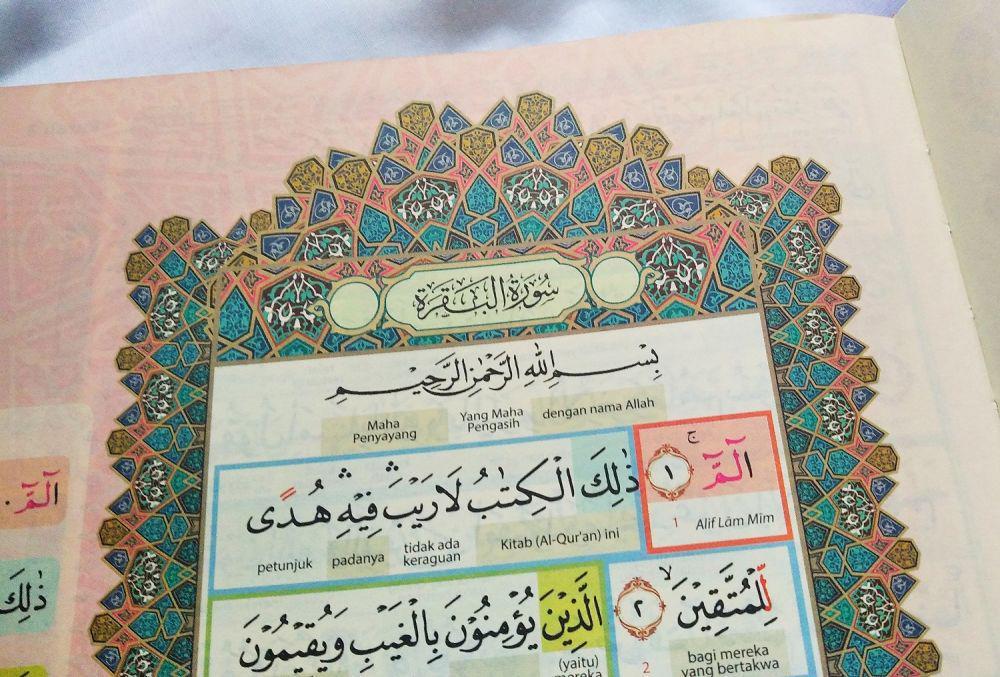 سُورَةُ الْبَقَرَةِ
بِسْمِ اللّٰهِ الرَّحْمٰنِ الرَّحِيْمِ
dengan nama Allah Yang Maha Pengasih Maha Penyayang
الۤمّۤ ۚ ١ ذٰلِكَ الْكِتٰبُ لَا رَيْبَ ۛ فِيْهِ ۛ هُدًى
1 Alif Lām Mīm Kitab (Al-Qur'an) ini tidak ada keraguan padanya petunjuk
لِّلْمُتَّقِيْنَ ۙ ٢ الَّذِيْنَ يُؤْمِنُوْنَ بِالْغَيْبِ وَيُقِيْمُوْنَ
2 bagi mereka yang bertakwa (yaitu) mereka
الۤمّۤ
ذٰلِكَ